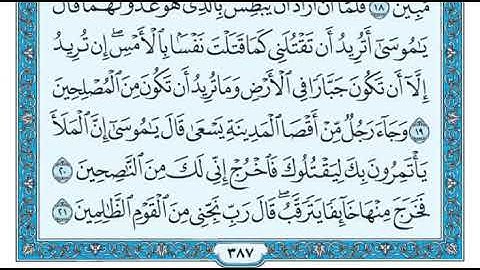 مُّبِينٌ ١٨ فَلَمَّآ أَنْ أَرَادَ أَن يَبْطِشَ بِٱلَّذِى هُوَ عَدُوٌّ لَّهُمَا قَالَ
يَٰمُوسَىٰٓ أَتُرِيدُ أَن تَقْتُلَنِى كَمَا قَتَلْتَ نَفْسًۢا بِٱلْأَمْسِ ۖ إِن تُرِيدُ
إِلَّآ أَن تَكُونَ جَبَّارًا فِى ٱلْأَرْضِ وَمَا تُرِيدُ أَن تَكُونَ مِنَ ٱلْمُصْلِحِينَ
١٩ وَجَآءَ رَجُلٌ مِّنْ أَقْصَا ٱلْمَدِينَةِ يَسْعَىٰ قَالَ يَٰمُوسَىٰٓ إِنَّ ٱلْمَلَأَ
يَأْتَمِرُونَ بِكَ لِيَقْتُلُوكَ فَٱخْرُجْ إِنِّى لَكَ مِنَ ٱلنَّٰصِحِينَ ٢٠
فَخَرَجَ مِنْهَا خَآئِفًا يَتَرَقَّبُ ۖ قَالَ رَبِّ نَجِّنِى مِنَ ٱلْقَوْمِ ٱلظَّٰلِمِينَ ٢١
٣٨٧